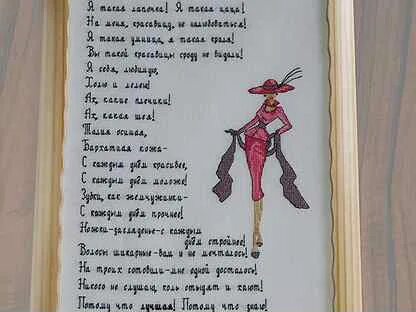 Я такая лапочка! Я такая цаца!
На меня, красавицу, не налюбоваться!
Я такая умница, я такая краля!
Вы такой красавицы сроду не видали!
Я себя, любимую,
Холю и лелею!
Ах, какие плечики!
Ах, какая шея!
Талия осиная,
Бархатная кожа-
С каждым днём красивее,
С каждым днём моложе!
Зубки, как жемчужинки-
С каждым днём прочнее!
Ножки-загляденье-с каждым
днём стройнее!
Волосы шикарные-вам и не мечталось!
На троих готовили-мне одной досталось!
Никого не слушаю, коль стыдят и хают!
Потому что лучшая! Потому что знаю!